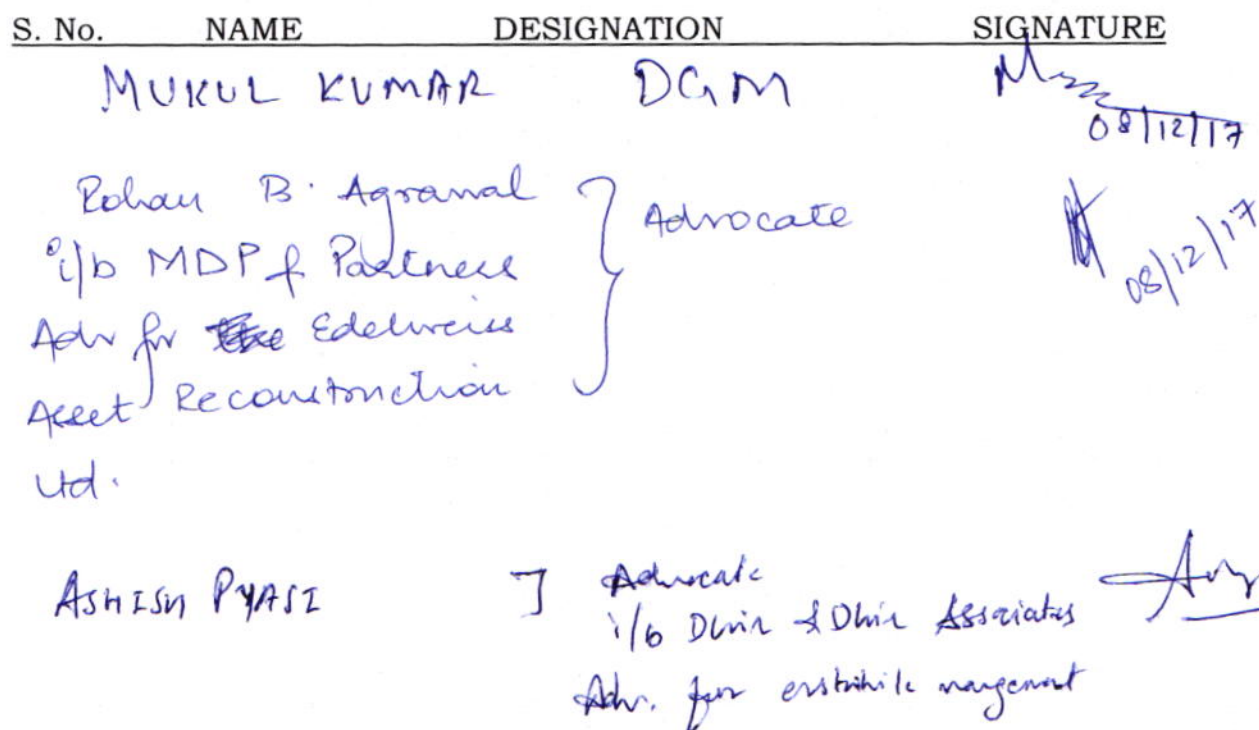 S. No. NAME DESIGNATION SIGNATURE
MUKUL KUMAR DGM
08/12/17
Rohan B. Agrawal } Advocate
i/b MDP & Partners
08/12/17
Adv for Edelweiss
Asset Reconstruction
Ltd.
ASHISH PYASI ] Advocate
i/b Dhir & Dhir Associates
Adv. for erstwhile mangement